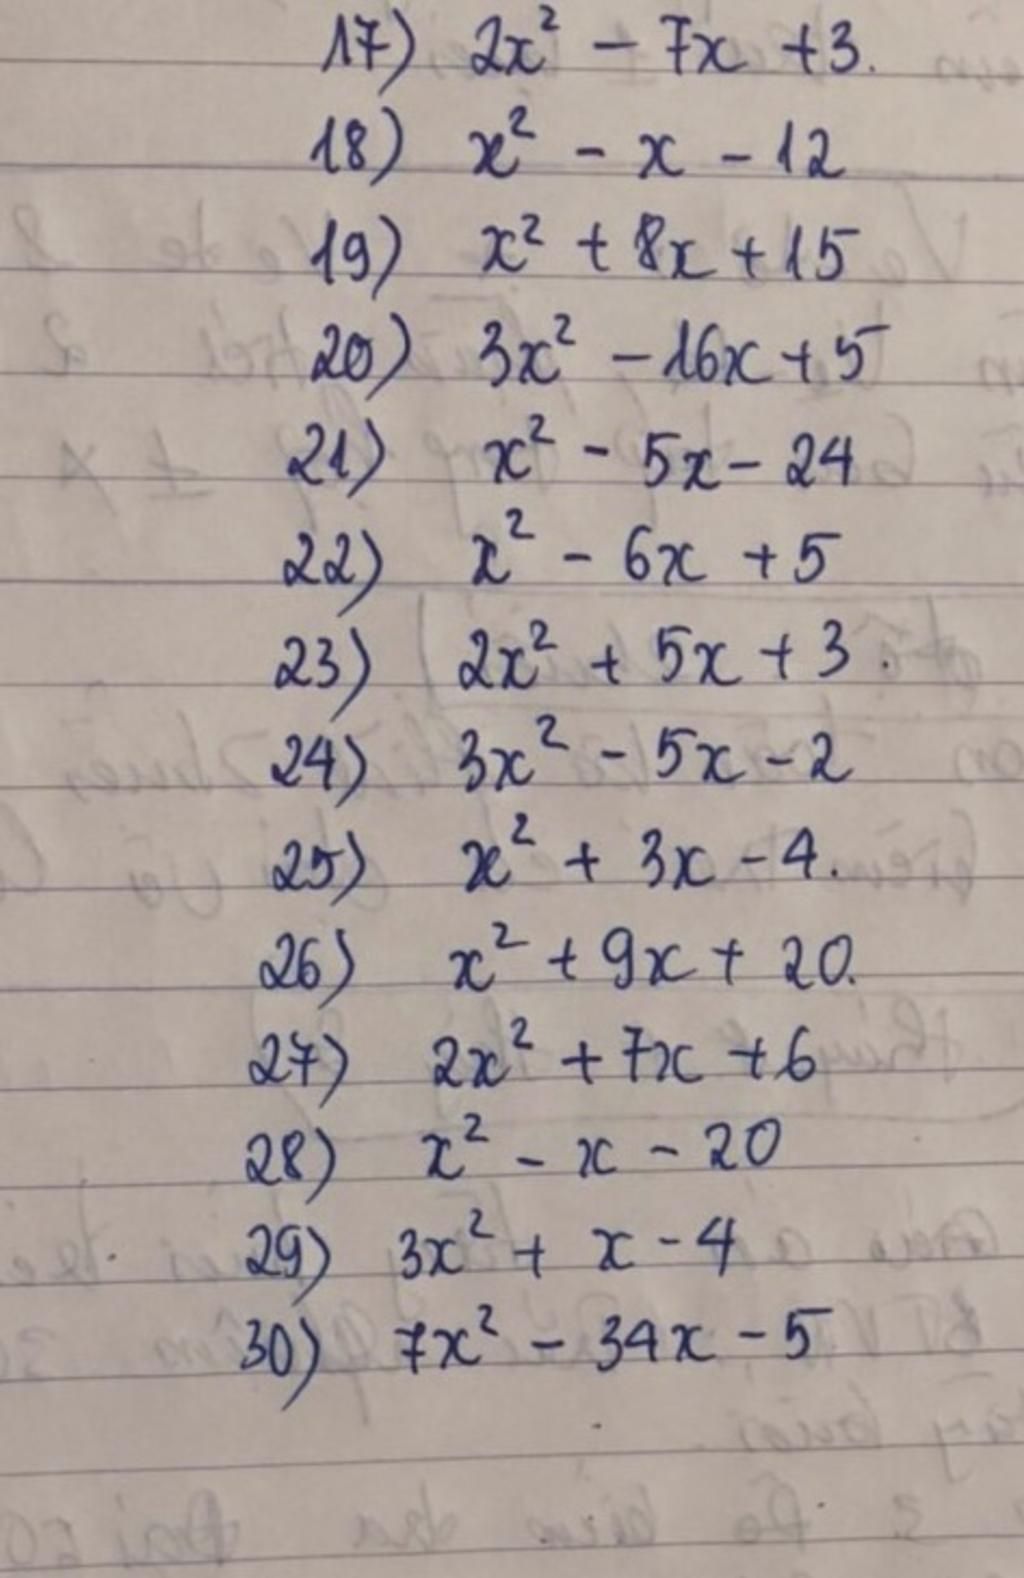 17) 2x² - 7x + 3.
18) x² - x - 12
19) x² + 8x + 15
20) 3x² - 16x + 5
21) x² - 5x - 24
22) x² - 6x + 5
23) 2x² + 5x + 3.
24) 3x² - 5x - 2
25) x² + 3x - 4.
26) x² + 9x + 20.
27) 2x² + 7x + 6
28) x² - x - 20
29) 3x² + x - 4
30) 7x² - 34x - 5